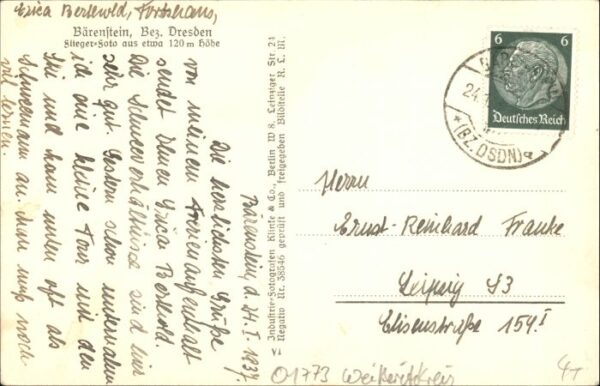 Erica Berthold, Forsthaus,
Bärenstein, Bez. Dresden
Flieger-Foto aus etwa 120 m Höhe
Bärenstein, d. 24. I. 1937.
Die herzlichsten Grüße
von meinem Ferienaufenthalt
sendet Ihnen Erica Berthold.
Die Schneeverhältnisse sind hier
sehr gut. Gestern schon unternahm
ich eine kleine Tour mit den
Ski und kam unten oft als
Schneemann an. Man muß noch
viel lernen.
Industrie-Fotografen Klinke & Co., Berlin W 8, Leipziger Str. 21
Negativ Nr. 38546 geprüft und freigegeben Bildstelle R. L. M.
6 6
Deutsches Reich
24.
*(BZ.DSDN)a
Herrn
Ernst-Reinhard Franke
Leipzig S3
Elisenstraße 154 I
01773 Weißeritzkreis